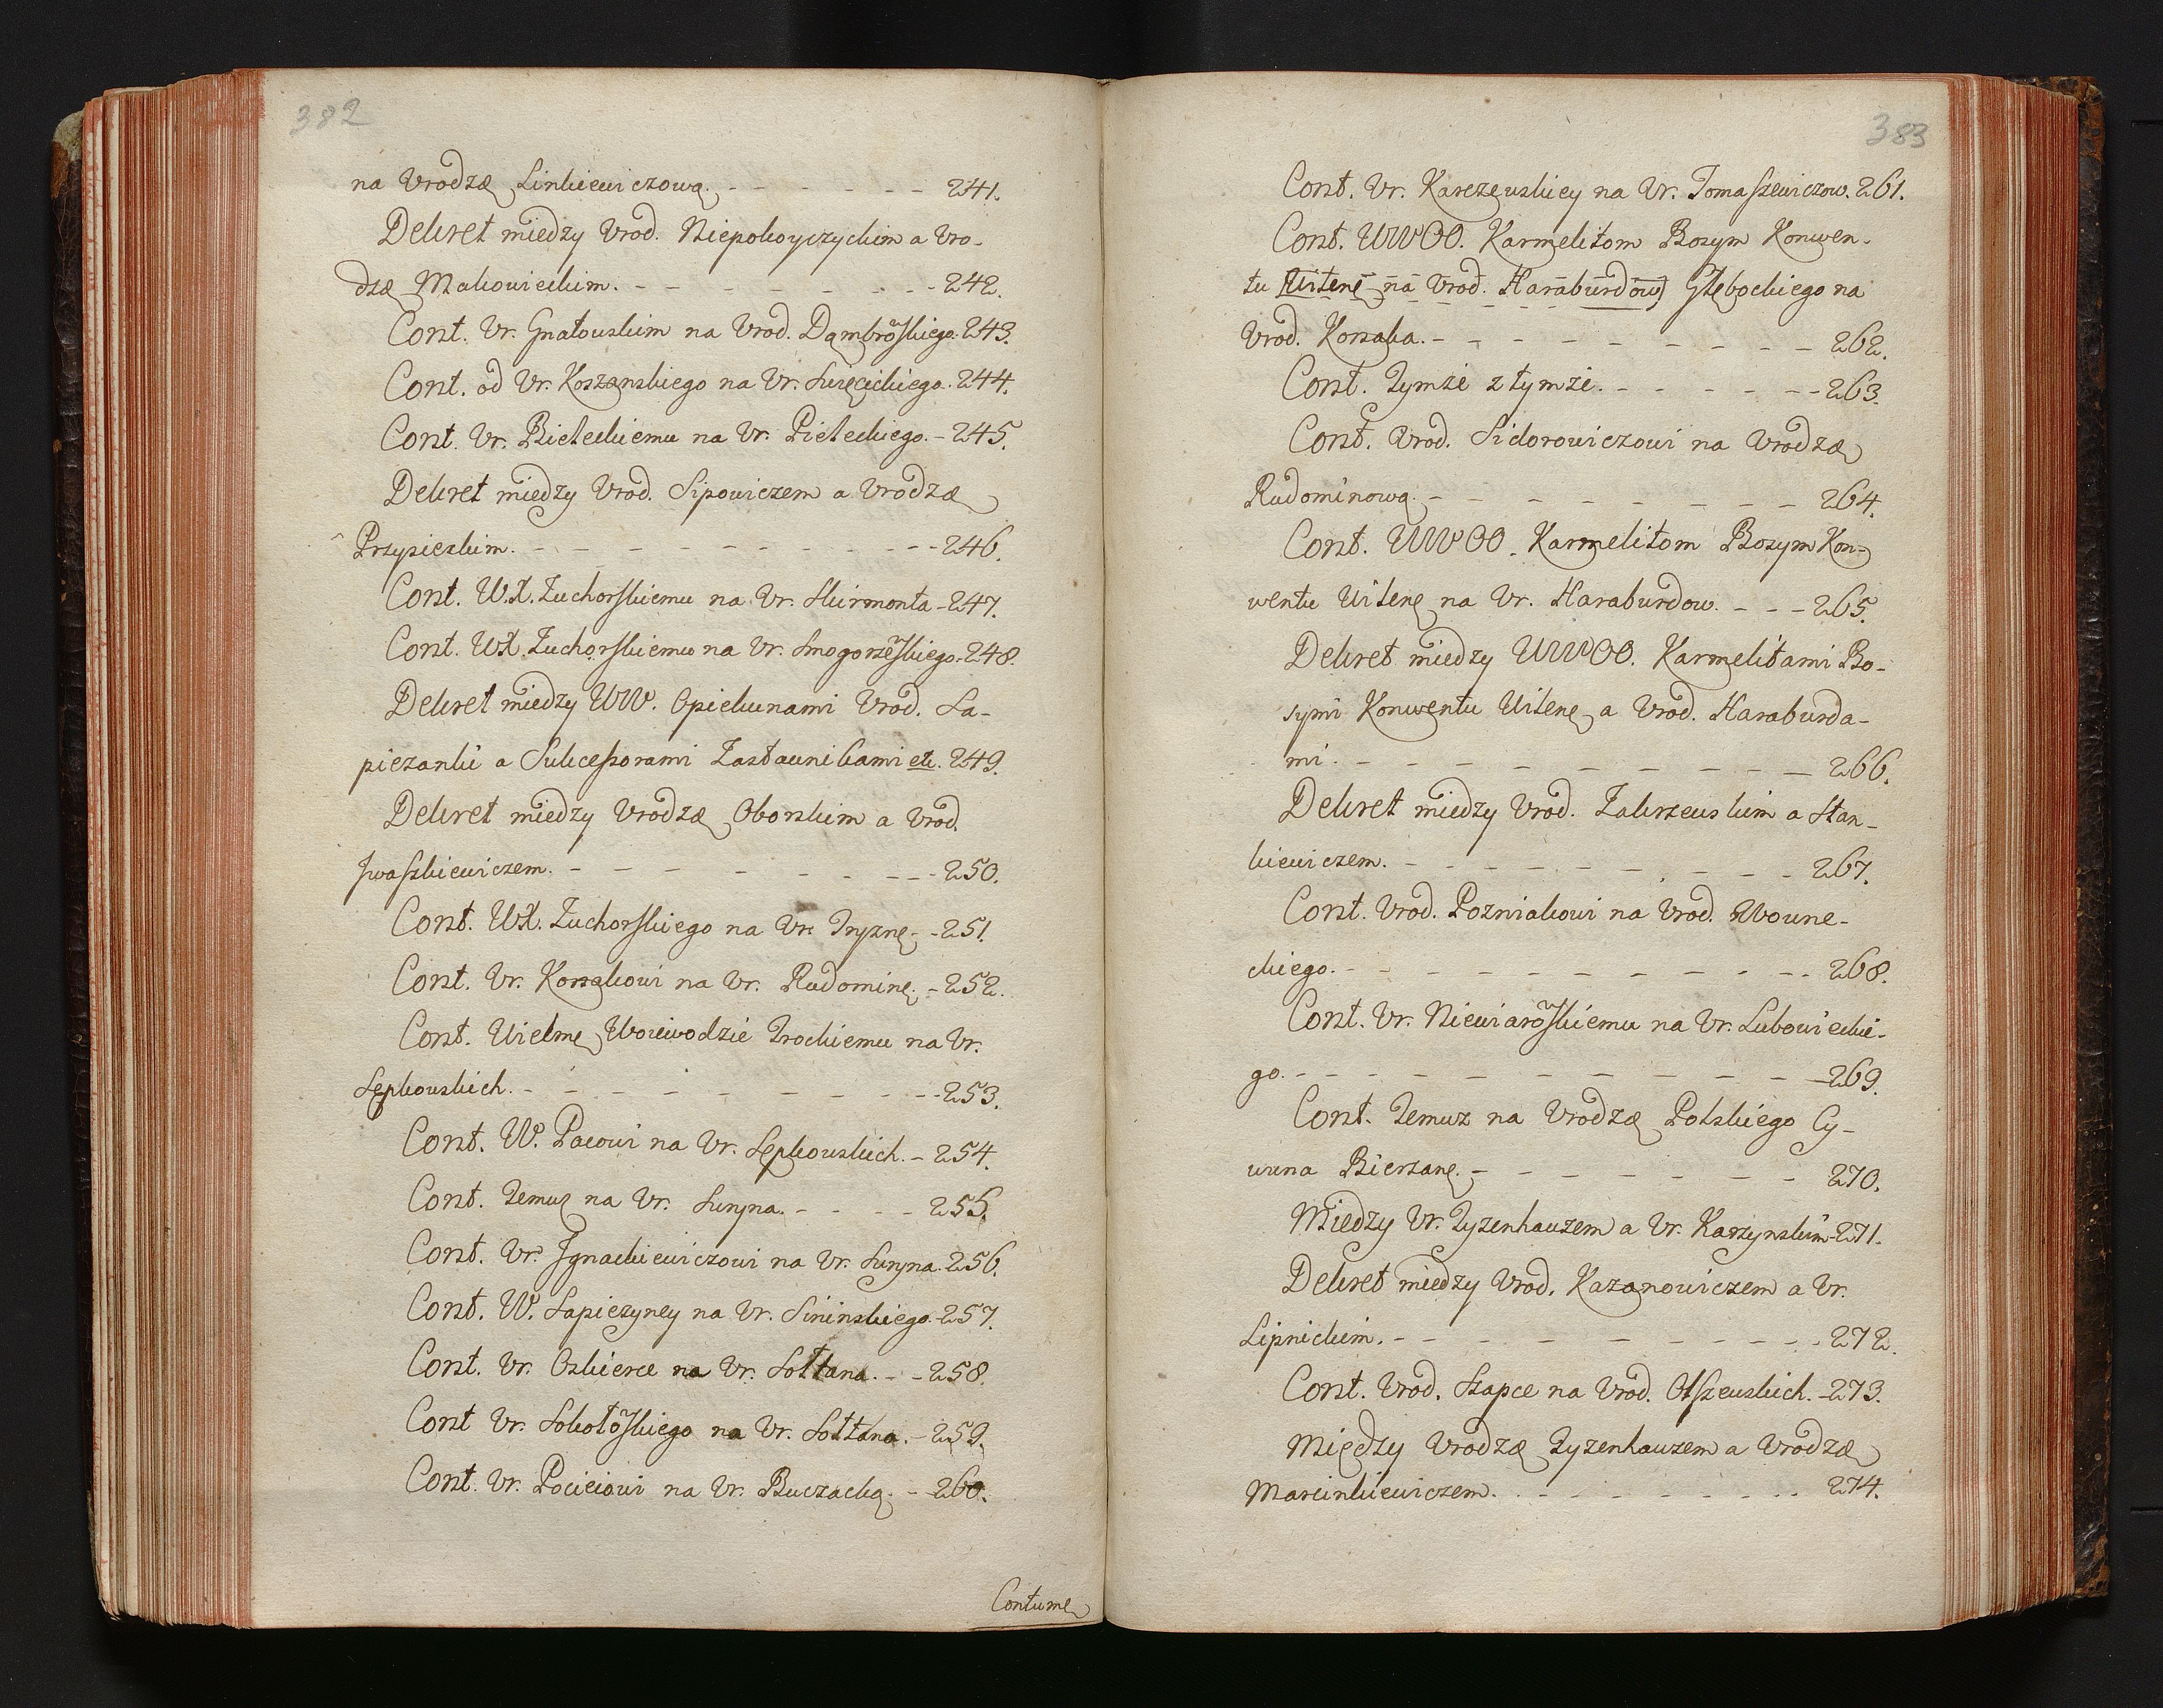 382
na Urodzę Linkiewiczową. - - - - - - 241.
Dekret między Urod. Niepokoyczyckim a Uro-
dzę Makowieckim. - - - - - - - - 242.
Cont. Ur. Gnatouskim na Urod. Dąmbrõskiego. 243.
Cont. od Ur. Koszanskiego na Ur. Swięcickiego. 244.
Cont. Ur. Bieteckiemu na Ur. Pieteckiego. - 245.
Dekret między Urod. Sipowiczem a Urodzę
Przysieckim. - - - - - - - - - 246.
Cont. W.X. Zuchorskiemu na Ur. Skirmonta - 247.
Cont. WX. Zuchorskiemu na Ur. Smogorzẽskiego. 248.
Dekret między WW. Opiekunami Urod. Sa-
piezanki a Sukcessorami Zastaunikami etc. 249.
Dekret między Urodzę Oborskim a Urod.
Jwaszkiewiczem. - - - - - - - - 250.
Cont. WX. Zuchorskiego na Ur. Tryznę - - 251.
Cont. Ur. Korsakowi na Ur. Rudominę. - 252.
Cont. Wielmę Woiewodzie Trockiemu na Ur.
Sępkouskich. - - - - - - - - 253.
Cont. W. Pacowi na Ur. Sępkouskich. - 254.
Cont. Temuz na Ur. Suryna. - - - - 255.
Cont. Ur. Jgnackiewiczowi na Ur. Suryna. 256.
Cont. W. Sapiezyney na Ur. Sininskiego. 257.
Cont. Ur. Oskierce na Ur. Sołtana. - - 258.
Cont Ur. Sokołõskiego na Ur. Sołtana. - 259.
Cont. Ur. Pocieiowi na Ur. Buczacką. - 260.
Contumę
383
Cont. Ur. Karczeuskiey na Ur. Tomaszewiczow. 261.
Cont. UWWOO. Karmelitom Bosym Konwen-
tu [Witenę na Urod. Haraburdow] Głębockiego na
Urod. Korsaka. - - - - - - - - - 262.
Cont. Tymże z tymże. - - - - - - 263.
Cont. Urod. Sidorowiczowi na Urodzę
Rudominową. - - - - - - - - 264.
Cont. UWWOO. Karmelitom Bosym Kon-
wentu Witenę na Ur. Haraburdow. - - - 265.
Dekret między UWWOO. Karmelitami Bo-
symi Konwentu Witenę a Urod. Haraburda-
mi. - - - - - - - - - 266.
Dekret między Urod. Zakrzeuskim a Stan-
kiewiczem. - - - - - - - - 267.
Cont. Urod. Pozniakowi na Urod. Woune-
ckiego. - - - - - - - - - 268.
Cont. Ur. Niewiarõskiemu na Ur. Lubowieckie-
go. - - - - - - - - - - 269.
Cont. Temuz na Urodzę Polskiego Cy-
wuna Bierzanę. - - - - - - - 270.
Między Ur. Tyzenhauzem a Ur. Karzynskim - 271.
Dekret między Urod. Kazanowiczem a Ur.
Lipnickim. - - - - - - - - - 272.
Cont. Urod. Szapce na Urod. Olszeuskich. - 273.
Między Urodzę Tyzenhauzem a Urodzę
Marcinkiewiczem. - - - - - - - - 274.